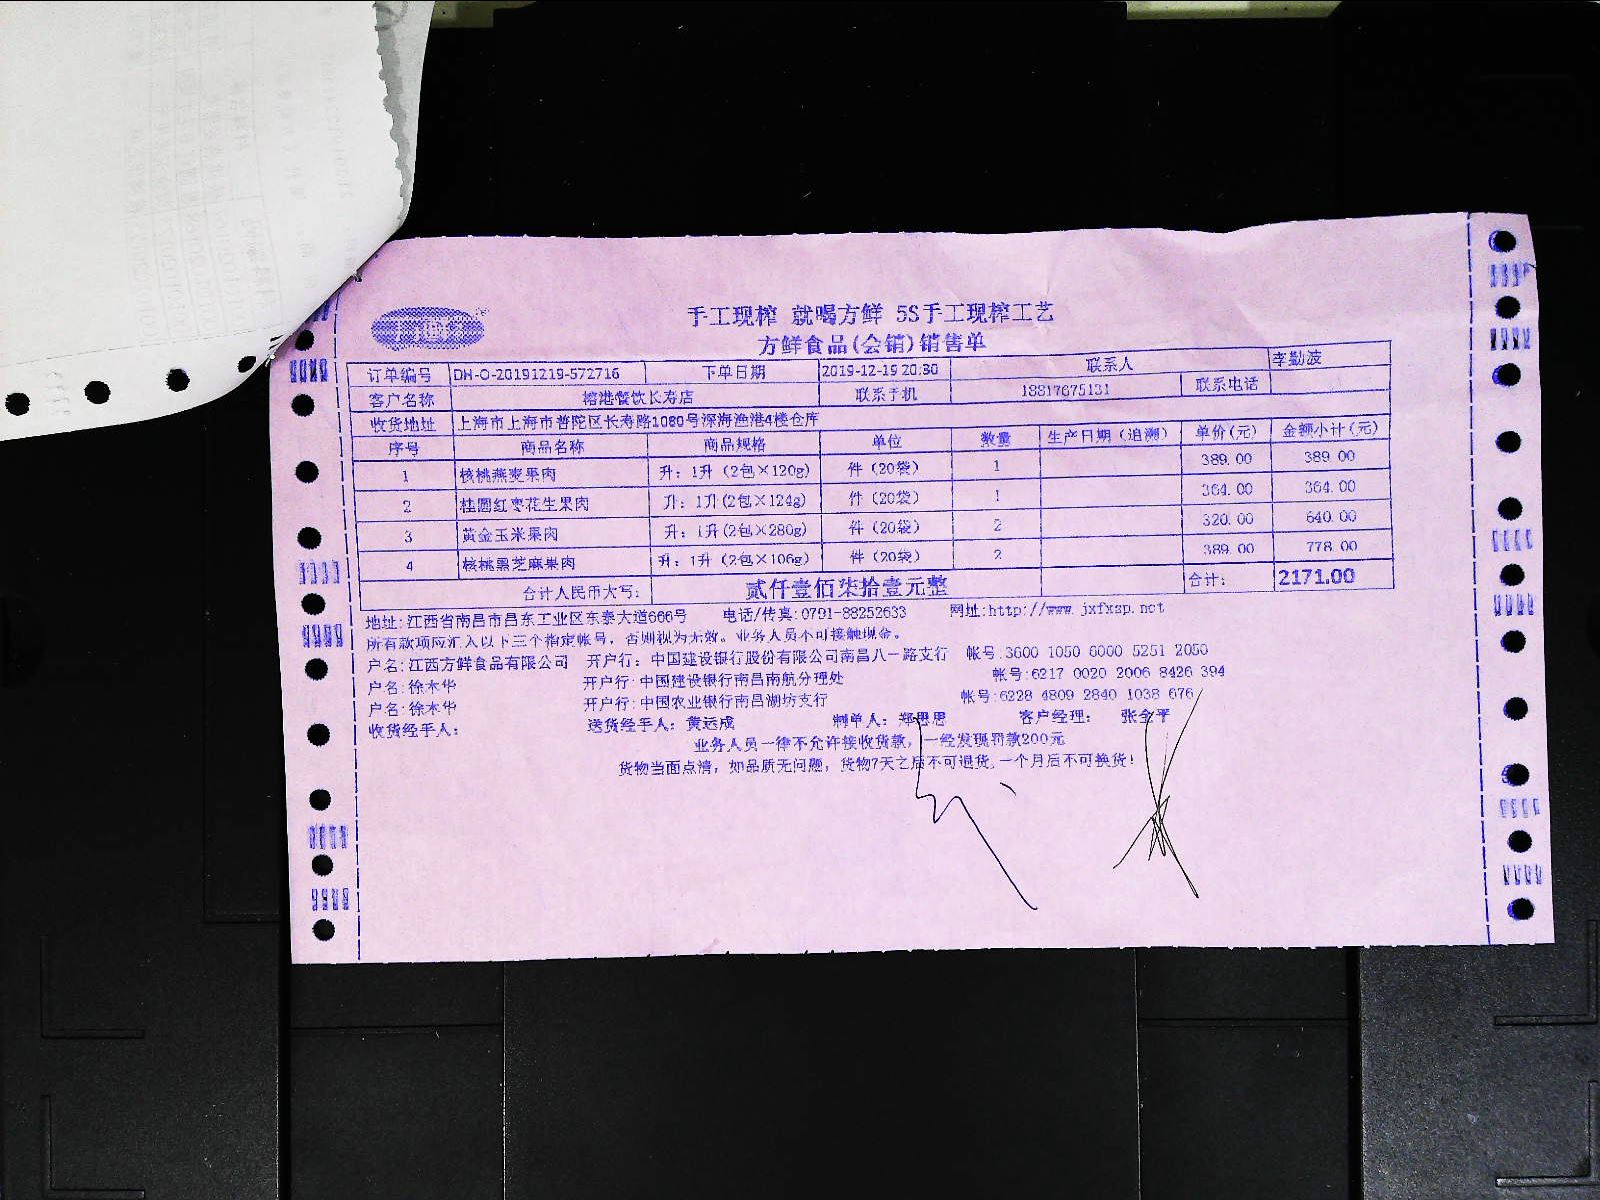 手工现榨 就喝方鲜 5S手工现榨工艺
方鲜食品(会销)销售单
订单编号 DH-O-20191219-572716 下单日期 2019-12-19 20:30 联系人 李勤波
客户名称 榕港餐饮长寿店 联系手机 18817675131 联系电话
收货地址 上海市上海市普陀区长寿路1080号深海渔港4楼仓库
序号 商品名称 商品规格 单位 数量 生产日期(追溯) 单价(元) 金额小计(元)
1 核桃燕麦果肉 升：1升（2包×120g） 件（20袋） 1 389.00 389.00
2 桂圆红枣花生果肉 升：1升(2包×124g) 件（20袋） 1 364.00 364.00
3 黄金玉米果肉 升：1升(2包×280g) 件（20袋） 2 320.00 640.00
4 核桃黑芝麻果肉 升：1升（2包×106g） 件（20袋） 2 389.00 778.00
合计人民币大写： 贰仟壹佰柒拾壹元整 合计： 2171.00
地址:江西省南昌市昌东工业区东泰大道666号 电话/传真:0791-88252633 网址:http://www.jxfxsp.net
所有款项应汇入以下三个指定帐号，否则视为无效。业务人员不可接触现金。
户名:江西方鲜食品有限公司 开户行：中国建设银行股份有限公司南昌八一路支行 帐号:3600 1050 6000 5251 2050
户名:徐木华 开户行:中国建设银行南昌南航分理处 帐号:6217 0020 2006 8426 394
户名:徐木华 开户行:中国农业银行南昌湖坊支行 帐号:6228 4809 2840 1038 676
收货经手人： 送货经手人：黄运成 制单人：郑思思 客户经理： 张金平
业务人员一律不允许接收货款，一经发现罚款200元
货物当面点清，如品质无问题，货物7天之后不可退货，一个月后不可换货！